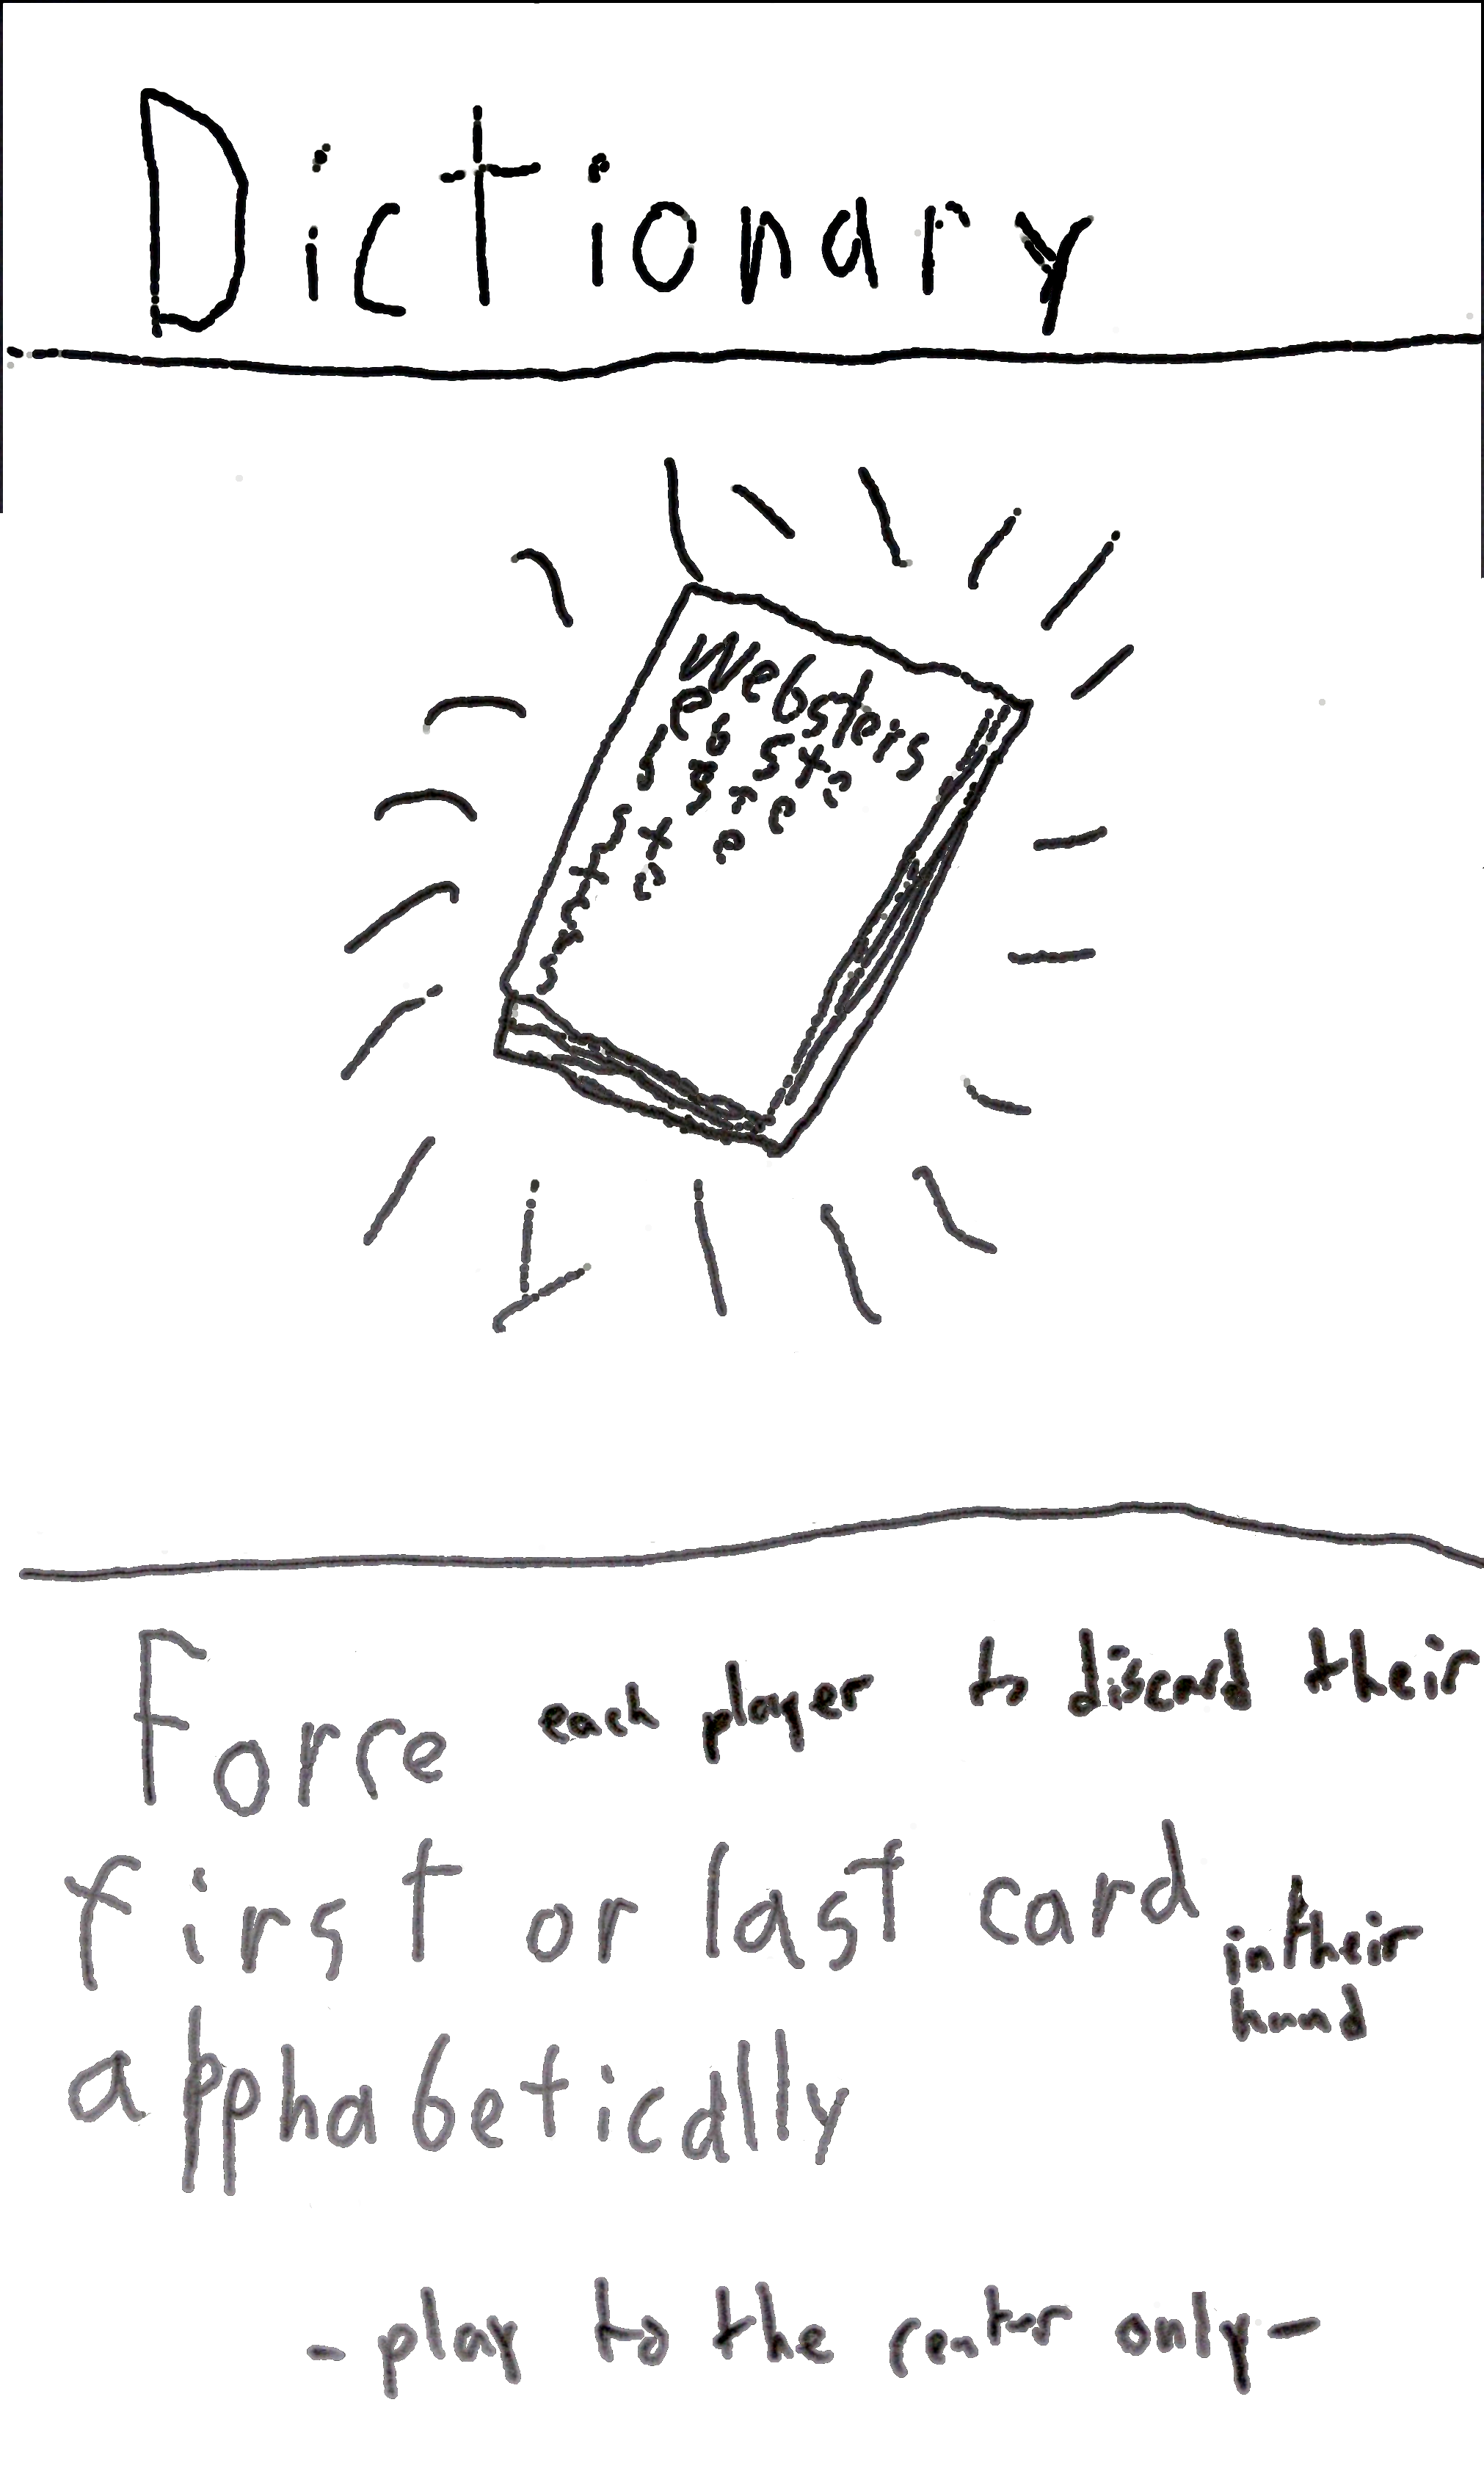 Dictionary
Websters
e b s t e
s t e
s t e
t e
e
r
s
Force each player to discard their
first or last card in their
hand
alphabetically
-play to the center only-